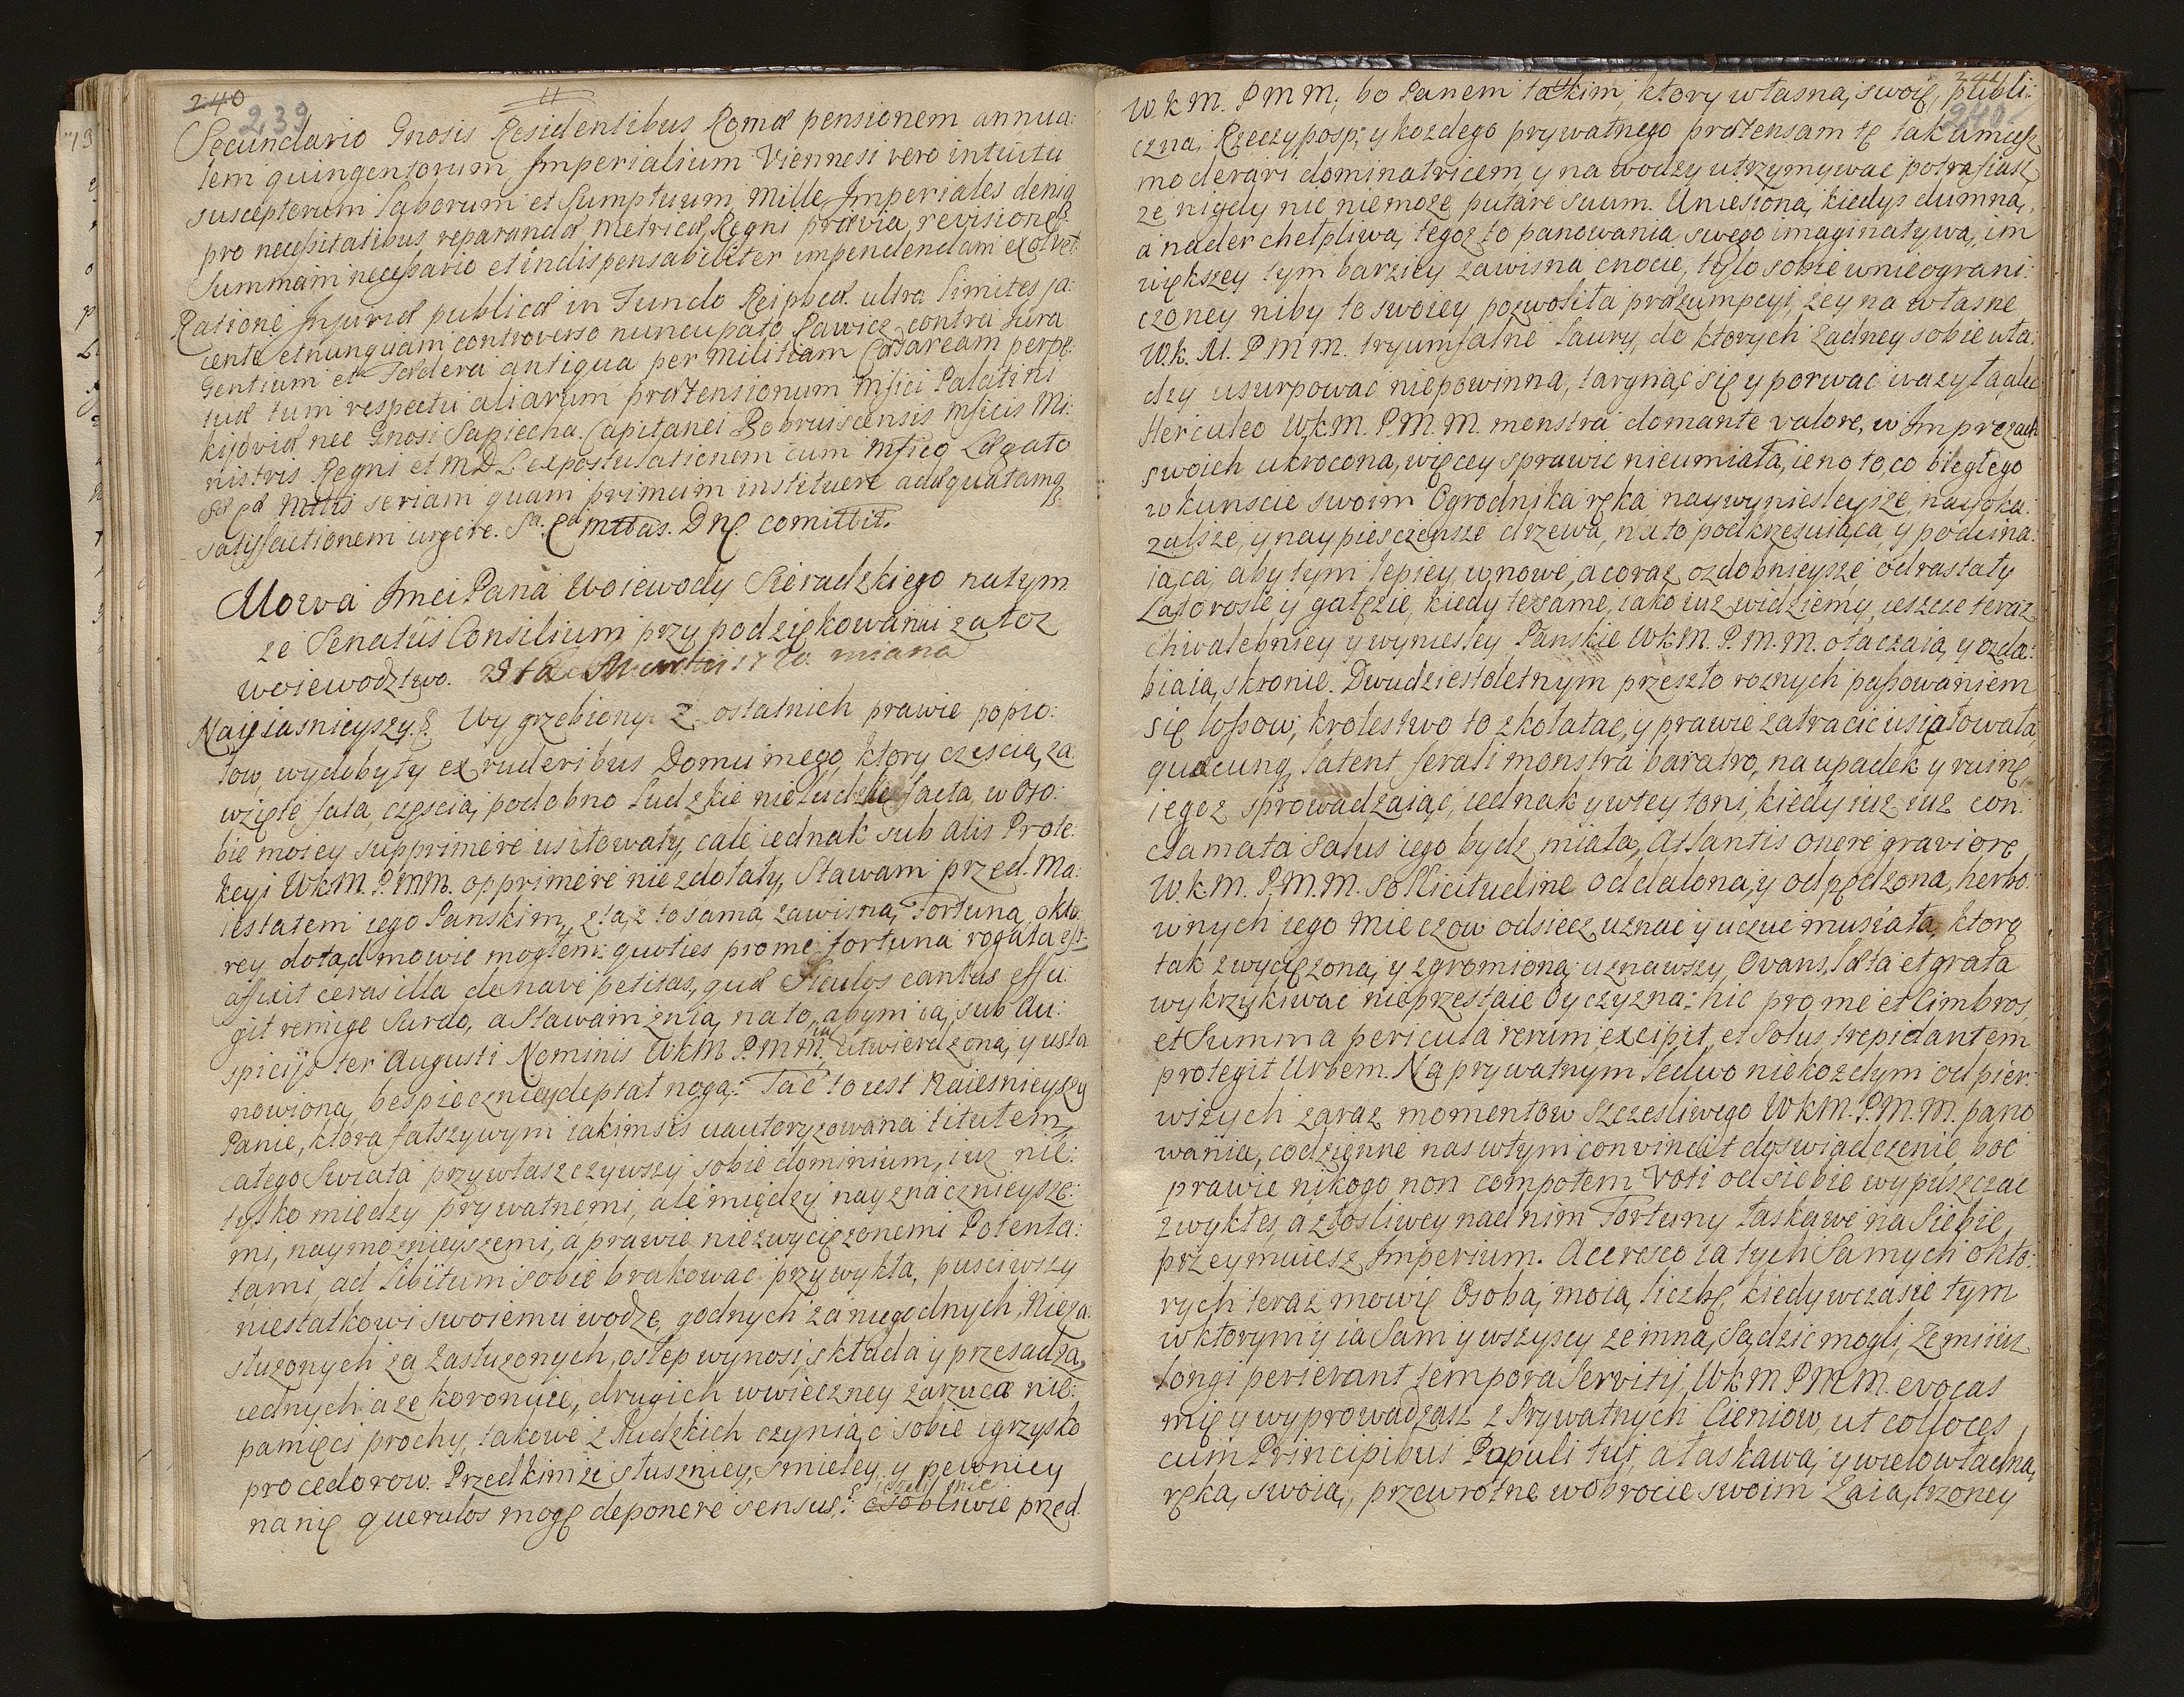 240
239
Secundario Gnosis Residentibus Romæ pensionem annua:
lem quingentorum Imperialium Viennesi vero intuitu
susceptorum laborum et Sumptuum, Mille Imperiales deniq
pro necessitatibus reparandæ Metricæ Regni prævia revisione
Summam necessario et indispensabiliter impendendam exolvet.
Ratione Injuriæ publicæ in Fundo Reipbcæ. ultra limites ja:
cente et nunquam controverso nuncupato Rawicz contra Jura
Gentium et Fædera antiqua per Militiam Cæsaream perpe:
tuæ tum respectu aliarum prætensionum Mfici Palatini
kijoviæ nec Gnosi Sapiecha Capitanei Bobruiscensis Mficis Mi:
nistris Regni et MDL expostulationem cum Mfico Legato
Sæ Cæ Mttis seriam quam primum instituere adæquatamq
satisfactionem urgere. Sa. Ca mttas. Dne. comittit.
Mowa Jmci Pana Woiewody Sieradzkiego natym
ze Senatus Consilium przy podziękowaniu zatoz
woiewodztwo. 28 Martii 1720 miana
Naijasnieyszy. Wygrzebiony z ostatnich prawie popio:
łow, wydobyty ex ruderibus Domu mego, ktory częscią za
wzięte fata, częscią podobno ludzkie nieludzkie facta, w Oso:
bie moiey supprimere usiłowały, cale iednak sub alis Prote:
kcyi WkM. P.MM. opprimere niezdołały, Stawam przed Ma:
iestatem iego Panskim, ztąż to samą zawisną, Fortuną, okto:
rey dotąd mowic mogłem: quoties pro me fortuna rogata est
affixit ceras illa de nave petitas, quæ Siculos cantus effu:
git remige surdo, a Stawam znią, na to, abym ią, sub au:
spicijs ter Augusti Nominis WkM P.MM. utwierdzoną, y usta
nowioną, bespieczniey deptał nogą: Tac to iest Naiesnieyszy
Panie, ktora fałszywym iakimsis uautoryzowana titułem,
całego Swiata przywłaszczywszy sobie dominium, iuz nie:
tylko miedzy prywatnemi, ale między nayznacznieysze:
mi, naymoznieyszemi, a prawie niezwyciężonemi Potenta:
tami, ad libitum sobie brakowac przywykła, pusciwszy
niestatkowi swoiemu wodze, godnych za niegodnych, nieza:
słuzonych za zasłuzonych, oslep wynosi, składa y przesadza,
iednych aze koronuie, drugich wwieczney zarzuca nie:
pamięci prochy, takowe z ludzkich czyniąc sobie igrzysko
procederow. Przed kimze słuszniey, smieley, y pewniey
nanię querulos mogę deponere sensus,? osobliwie przed
240
WkM. PMM, bo Panem takim, ktory własną, swoię, publi:
czną, Rzeczyposp: y kozdego prywatnego prætensam tę tak umiesz
moderari dominatricem y na wodzy utrzymywac potrafiasz,
ze nigdy nic niemoze putare suum. Uniesiona, kiedyś dumną,
a nader chełpliwą, tegoz to panowania swego imaginatywą, im
większey tym barziey zawisna cnocie, tylo sobie wnieograni:
czoney niby to swoiey pozwoliła præzumpcyi, zey na własne
W.k.M. PMM. tryumfalne laury, do ktorych zadney sobie wła:
dzy usurpowac niepowinna, targnąć się y porwac wazyła, ale
Herculeo WkM. P.M.M. monstra domante valore, w Imprezach
swoich ukrocona, więcey sprawic nieumiała, ieno to, co biegłego
w kunscie swoim Ogrodnika ręka naywyniesleysze, nayoka:
zalsze, y naypiesczensze drzewa, na to podkrzesuiąca, y podcina:
iąca, aby tym lepiey, w nowe, a coraz ozdobnieysze odrastały
Latorosle y gałęzie, kiedy te same, iako iuz widziemy, ieszcze teraz
chwalebniey y wyniesley Panskie WkM. P.M.M. otaczaią, y ozda:
biaią, skronie. Dwudziestoletnym przeszło roznych passowaniem
się lossow, krolestwo to zkołatac, y prawie zatracic usiłowała,
quæcunq latent ferali monstra baratro, na upadek y ruinę
iegoz sprowadzaiąc, iednak y w tey toni, kiedy iuz iuz con:
clamata salus iego bydz miała, Atlantis onere graviore
W.k.M. P.M.M. sollicitudine oddalona, y odpędzona, herbo:
wnych iego Mieczow odsiecz uznac y uczuc musiała, ktorą
tak zwyciężoną, y zgromioną uznawszy, Ovans, læta et grata
wykrzykiwac nieprzestaie Oyczyzna: hic pro me et Cimbros,
et Summa pericula rerum, excipit, et Solus trepidantem
protegit Urbem. Na prywatnym ledwo niekozdym od pier:
wszych zaraz momentow szczesliwego WkM. P.M.M. pano
wania, codzienne nas wtym convincit doswiadczenie, boc
prawie nikogo non compotem voti od siebie wypuszczac
zwykłes, a złosliwey nad nim Fortuny łaskawe na Siebie,
przeymuiesz Imperium. Accresco ia tych Samych okto:
rych teraz mowię Osobą, moią, liczbę, kiedy wczasie tym
wktorym y ia Sam y wszyscy ze mną, sądzic mogli, ze mi iuz
longi perierant tempora Servitij, WkM PMM. evocas
mię y wyprowadzasz z Prywatnych Cieniow, ut colloces
cum Principibus Populi tui, a łaskawą, y wielowładną,
ręką, swoią, przewrotne wobrocie swoim Zaią trzoney